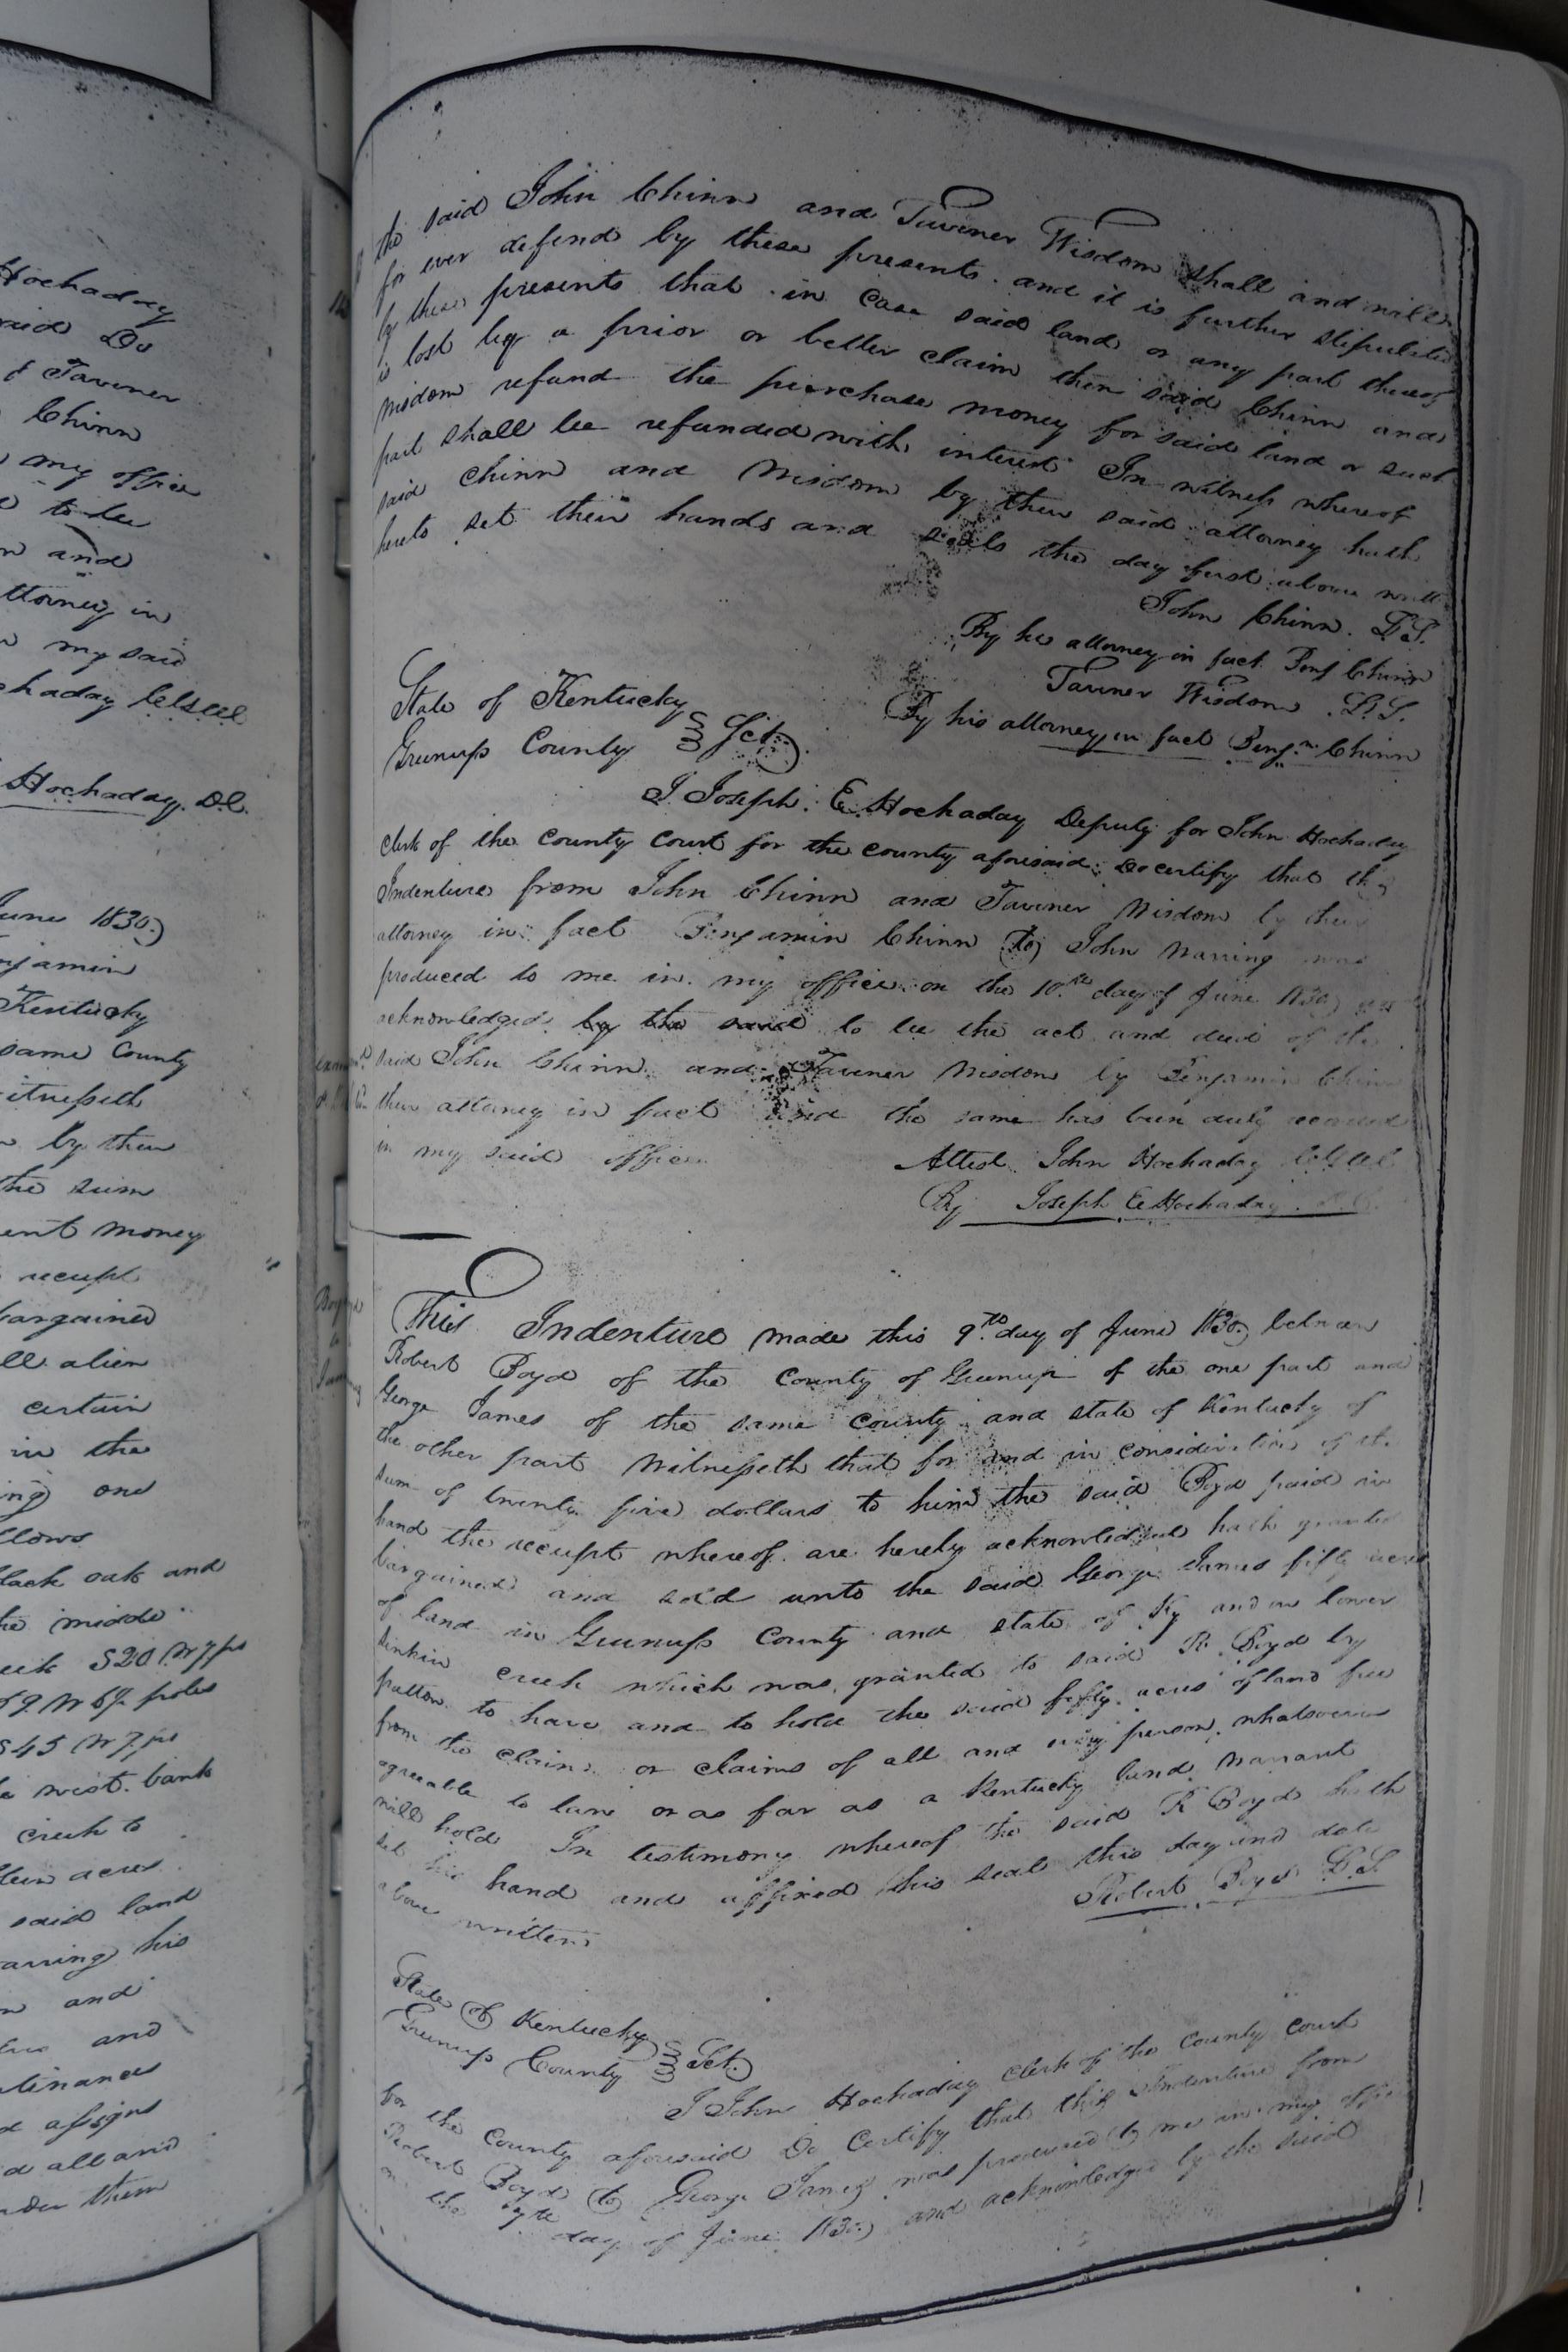 Hochaday
said Do
& Taviner
Chinn
my office
to be
and
attorney in
my said
Hochaday ClsCC
Hochaday. D.C.
June 1830
Benjamin
Kentucky
same County
witnesseth
by their
the sum
money
receipt
bargained
alien
certain
in the
one
follows
black oak and
the middle
creek S20 W 7 ps
69 W 69 poles
S45 W 7 ps
west bank
creek to
acres
said land
Warring his
and
and
assigns
all and
under them
the said John Chinn and Taviner Wisdom shall and will
for ever defend by these presents. and it is further stipulated
by these presents that in case said land or any part thereof
is lost by a prior or better claim then said Chinn and
Wisdom refund the purchase money for said land or such
part shall be refunded with interest In witness whereof
said Chinn and Wisdom by their said attorney hath
hereto set their hands and seals the day first above writt
John Chinn. L.S.
By his attorney in fact Benj Chinn
Taviner Wisdom. L.S.
By his attorney in fact Benjn. Chinn
State of Kentucky
Greenup County Sct.
I Joseph. E. Hochaday Deputy for John Hochaday
Clerk of the County Court for the County aforesaid: Do certify that this
Indenture from John Chinn and Taviner Wisdom by their
attorney in fact Benjamin Chinn To John Warring was
produced to me in my office on the 10th day of June 1830
acknowledged by the said to be the act and deed of the
said John Chinn and Taviner Wisdom by Benjamin Chinn
their attorney in fact and the same has been duly recorded
in my said office
Attest. John Hochaday
By Joseph E Hochaday
This Indenture made this 9th day of June 1830 between
Robert Boyd of the County of Greenup of the one part and
George James of the same County and state of Kentucky of
the other part Witnesseth that for and in consideration of the
sum of twenty five dollars to him the said Boyd paid in
hand the receipt whereof are hereby acknowledged hath granted
bargained and sold unto the said George James fifty acres
of land in Greenup County and state of Ky and on lower
Sinkin creek which was granted to said R Boyd by
patton to have and to hold the said fifty acres of land free
from the claim or claims of all and every person whatsoever
agreeable to law or as far as a Kentucky land warrant
will hold In testimony whereof the said R Boyd hath
set his hand and affixed this seal this day and date
above written
Robert Boyd L.S.
State of Kentucky
Greenup County Sct.
I John Hochaday Clerk of the County Court
for the County aforesaid Do Certify that this Indenture from
Robert Boyd to George James was produced to me in my office
on the 9th day of June 1830 and acknowledged by the said